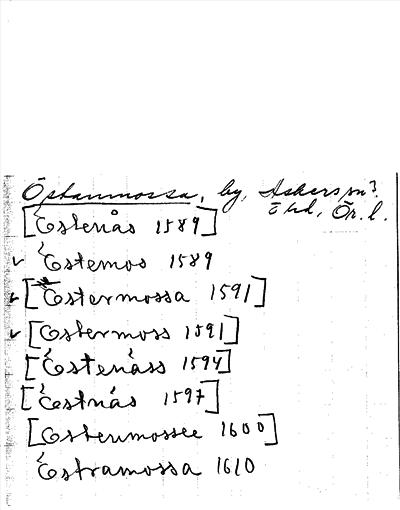 Östanmossa, by, Askers sn?
Ö hd, Ör. l.
[Éstenås 1589]
✓ Éstemos 1589
✓ [Estermossa 1591]
✓ [Estermoss 1591]
[Éstenåss 1594]
[Éstnås 1597]
[Estenmossee 1600]
Éstramossa 1610